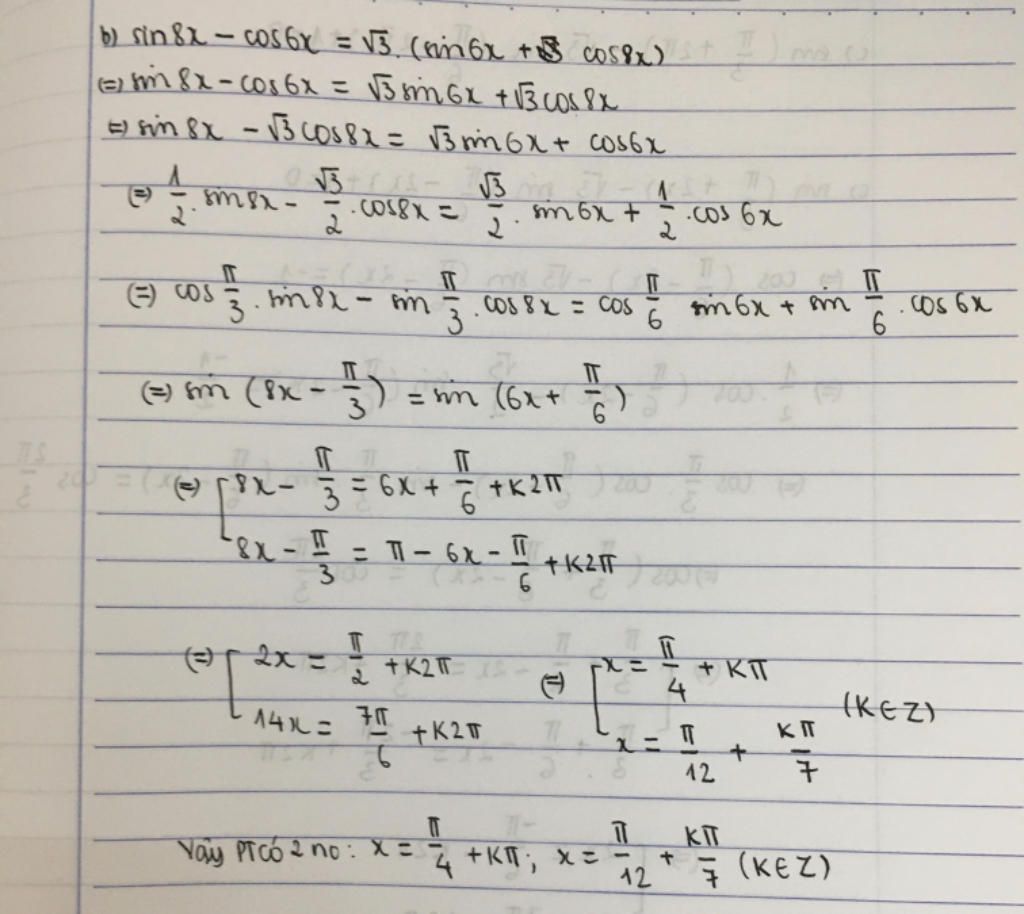 b) sin8x − cos6x = √3. (sin6x + cos8x)
(=) sin8x − cos6x = √3 sin6x + √3 cos8x
(=) sin8x − √3cos8x = √3 sin6x + cos6x
(=) 1/2 . sin8x − √3/2 . cos8x = √3/2 . sin6x + 1/2 . cos6x
(=) cos π/3 . sin8x − sin π/3 . cos8x = cos π/6 sin6x + sin π/6 . cos6x
(=) sin (8x − π/3) = sin (6x + π/6)
(=) [ 8x − π/3 = 6x + π/6 + K2π
8x − π/3 = π − 6x − π/6 + K2π
(=) [ 2x = π/2 + K2π (=) [ x = π/4 + Kπ
14x = 7π/6 + K2π x = π/12 + Kπ/7 (K∈Z)
Vậy PT có 2 no: x = π/4 + Kπ; x = π/12 + Kπ/7 (K∈Z)